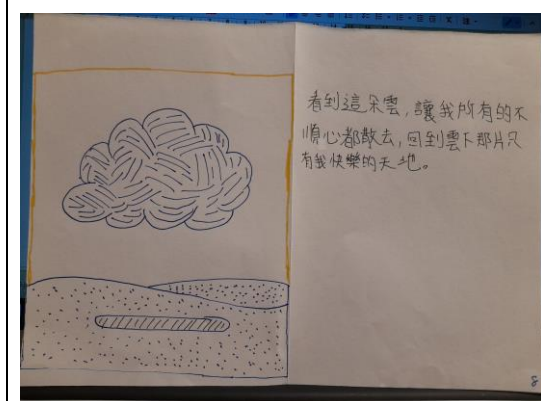 看到這朵雲,讓我所有的不
順心都散去,回到雲下那片只
有我快樂的天地。
8